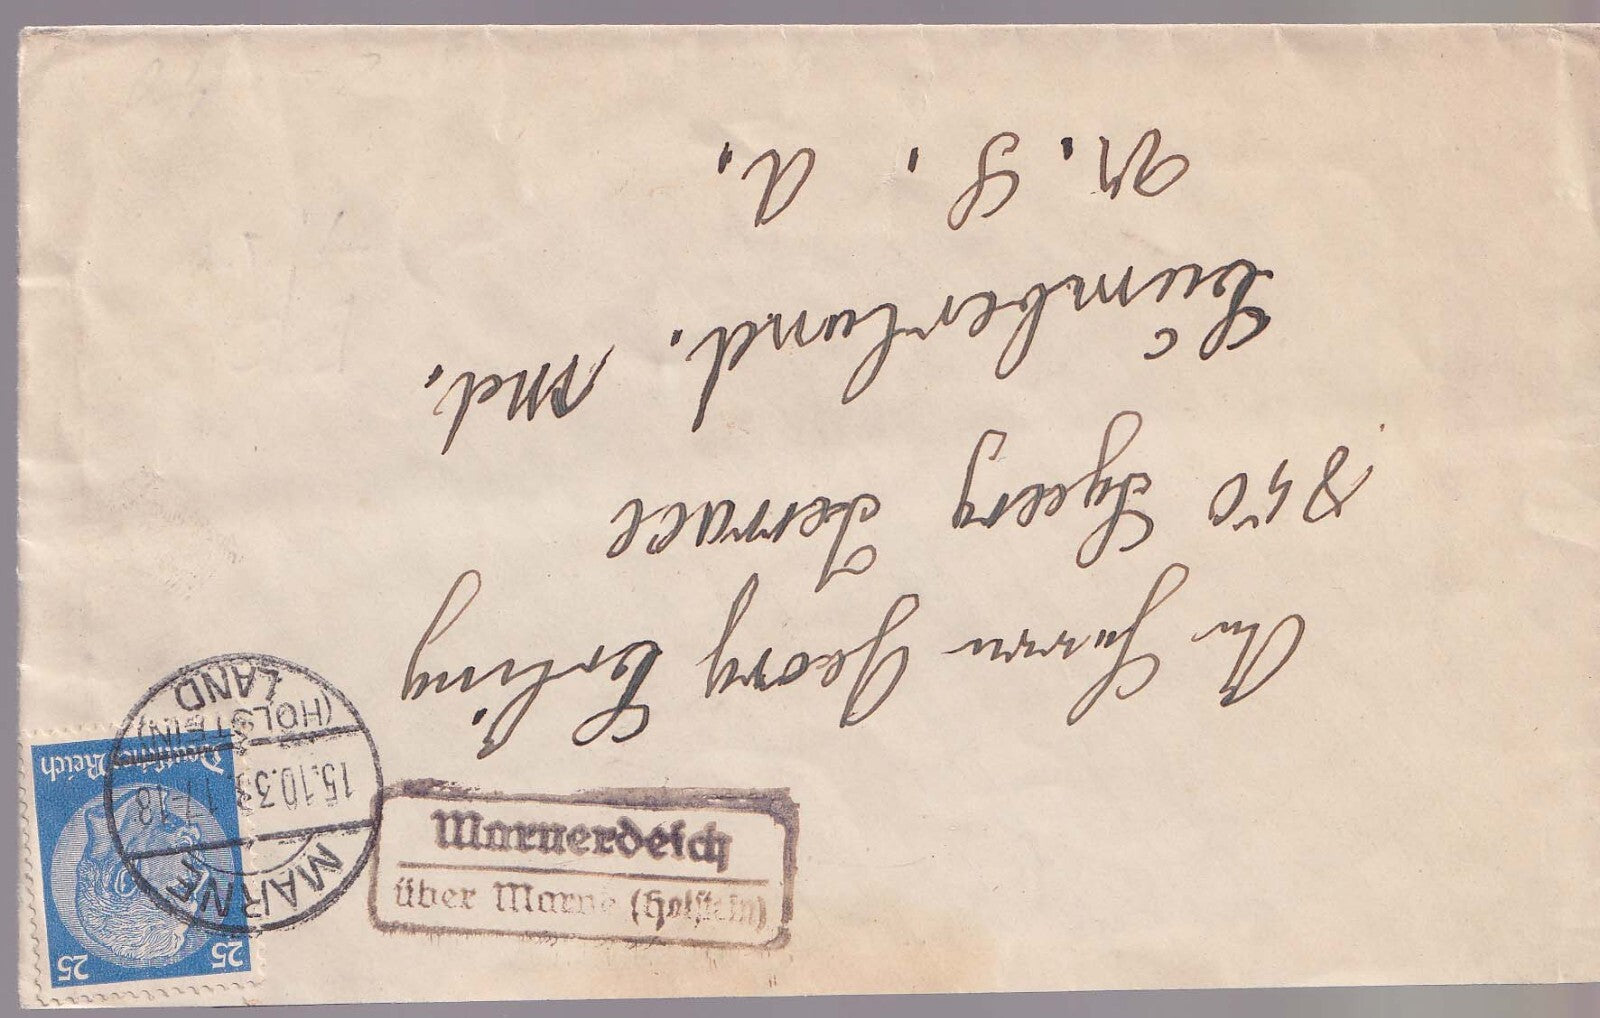 Marnerdeich
über Marne (Holstein)
Deutsches Reich
25 25
MARNE
15.10.33.17-18
(HOLSTEIN)
LAND
An Herrn Georg
Terrace
Cumberland. Md.
U. S. A.